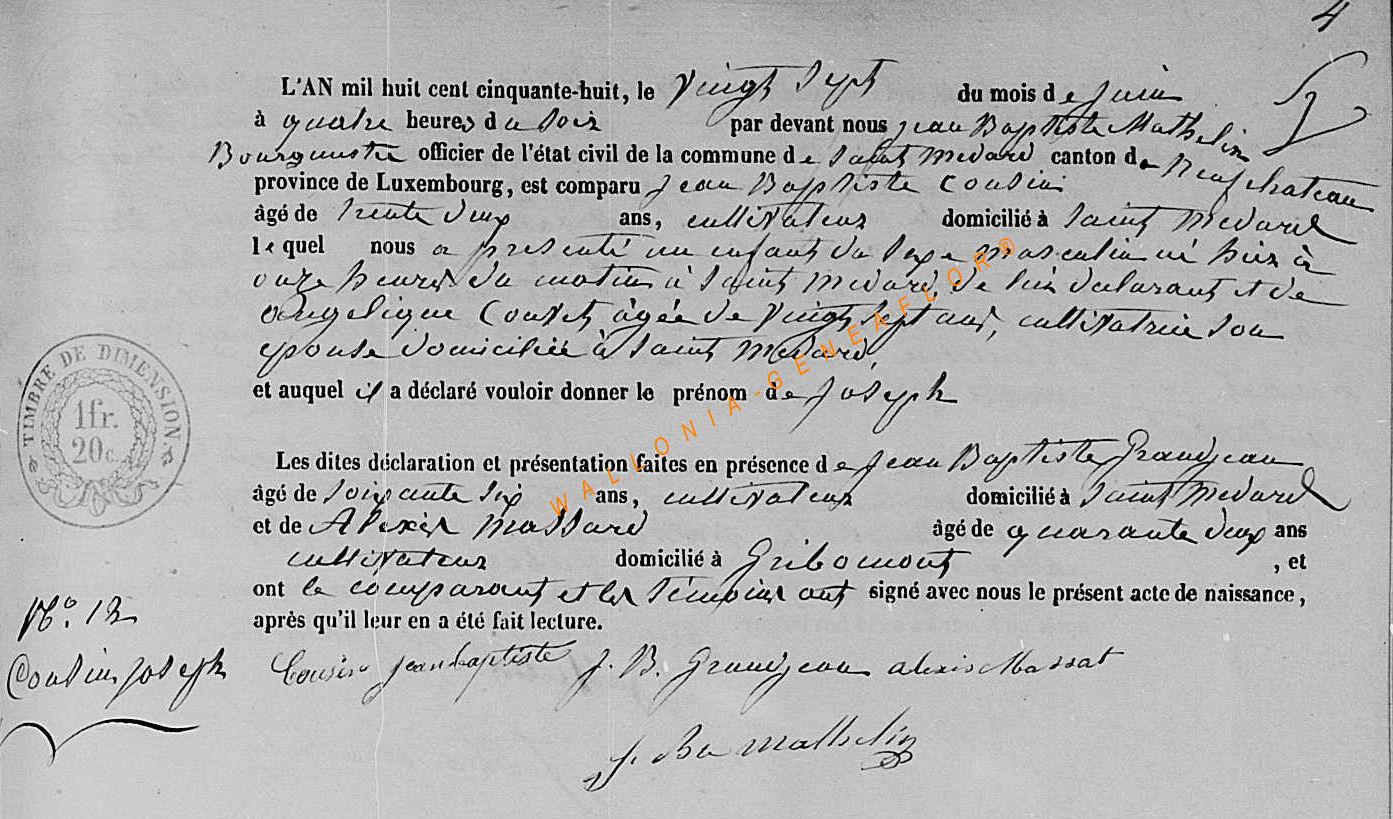 4
L'AN mil huit cent cinquante-huit, le vingt sept du mois de juin
à quatre heures du soir par devant nous jean Baptiste Mathelin
Bourgmestre officier de l'état civil de la commune de Saint Medard canton de Neufchateau
province de Luxembourg, est comparu jean Baptiste Cousin
âgé de trente deux ans, cultivateur domicilié à Saint Medard
lequel nous a presenté un enfant du sexe masculin né hier à
onze heures du matin à Saint Medard, de lui declarant et de
angelique Couset âgée de vingt sept ans, cultivatrice son
epouse domiciliée à Saint Medard
et auquel il a déclaré vouloir donner le prénom de joseph
TIMBRE DE DIMENSION.
1fr.
20c.
Les dites déclaration et présentation faites en présence de jean Baptiste Grandjean
âgé de soixante six ans, cultivateur domicilié à Saint Medard
et de Alexis Massard âgé de quarante deux ans
cultivateur domicilié à Gribomont, et
ont le comparant et les temoins ont signé avec nous le présent acte de naissance,
après qu'il leur en a été fait lecture.
No. 12
Cousin joseph
Cousin jeanbaptiste j. B. Grandjean alexis Massat
j. Bte Mathelin
WALLONIA-GENEAFLOR®